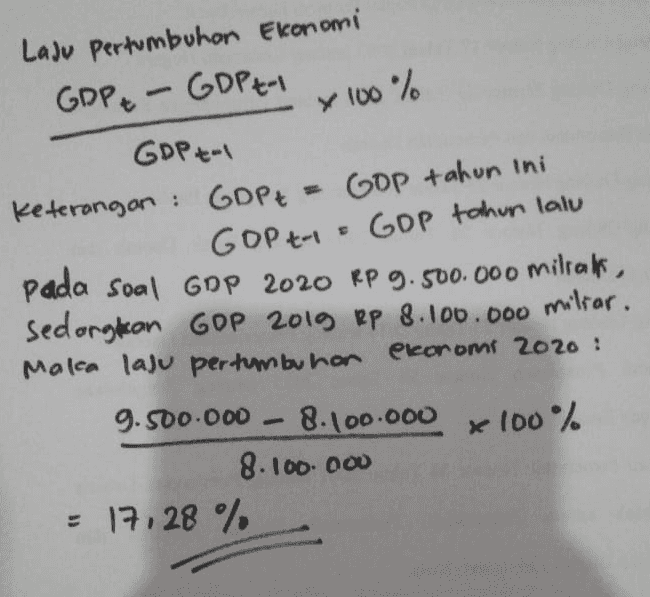 Laju Pertumbuhan Ekonomi
GDPt - GDPt-1 x 100 %
GDPt-1
Keterangan : GDPt = GDP tahun ini
GDPt-1 = GDP tahun lalu
Pada soal GDP 2020 RP 9.500.000 milrak,
Sedangkan GDP 2019 RP 8.100.000 milrar.
Maka laju pertumbuhan ekonomi 2020 :
9.500.000 - 8.100.000 x 100 %
8.100.000
= 17,28 %